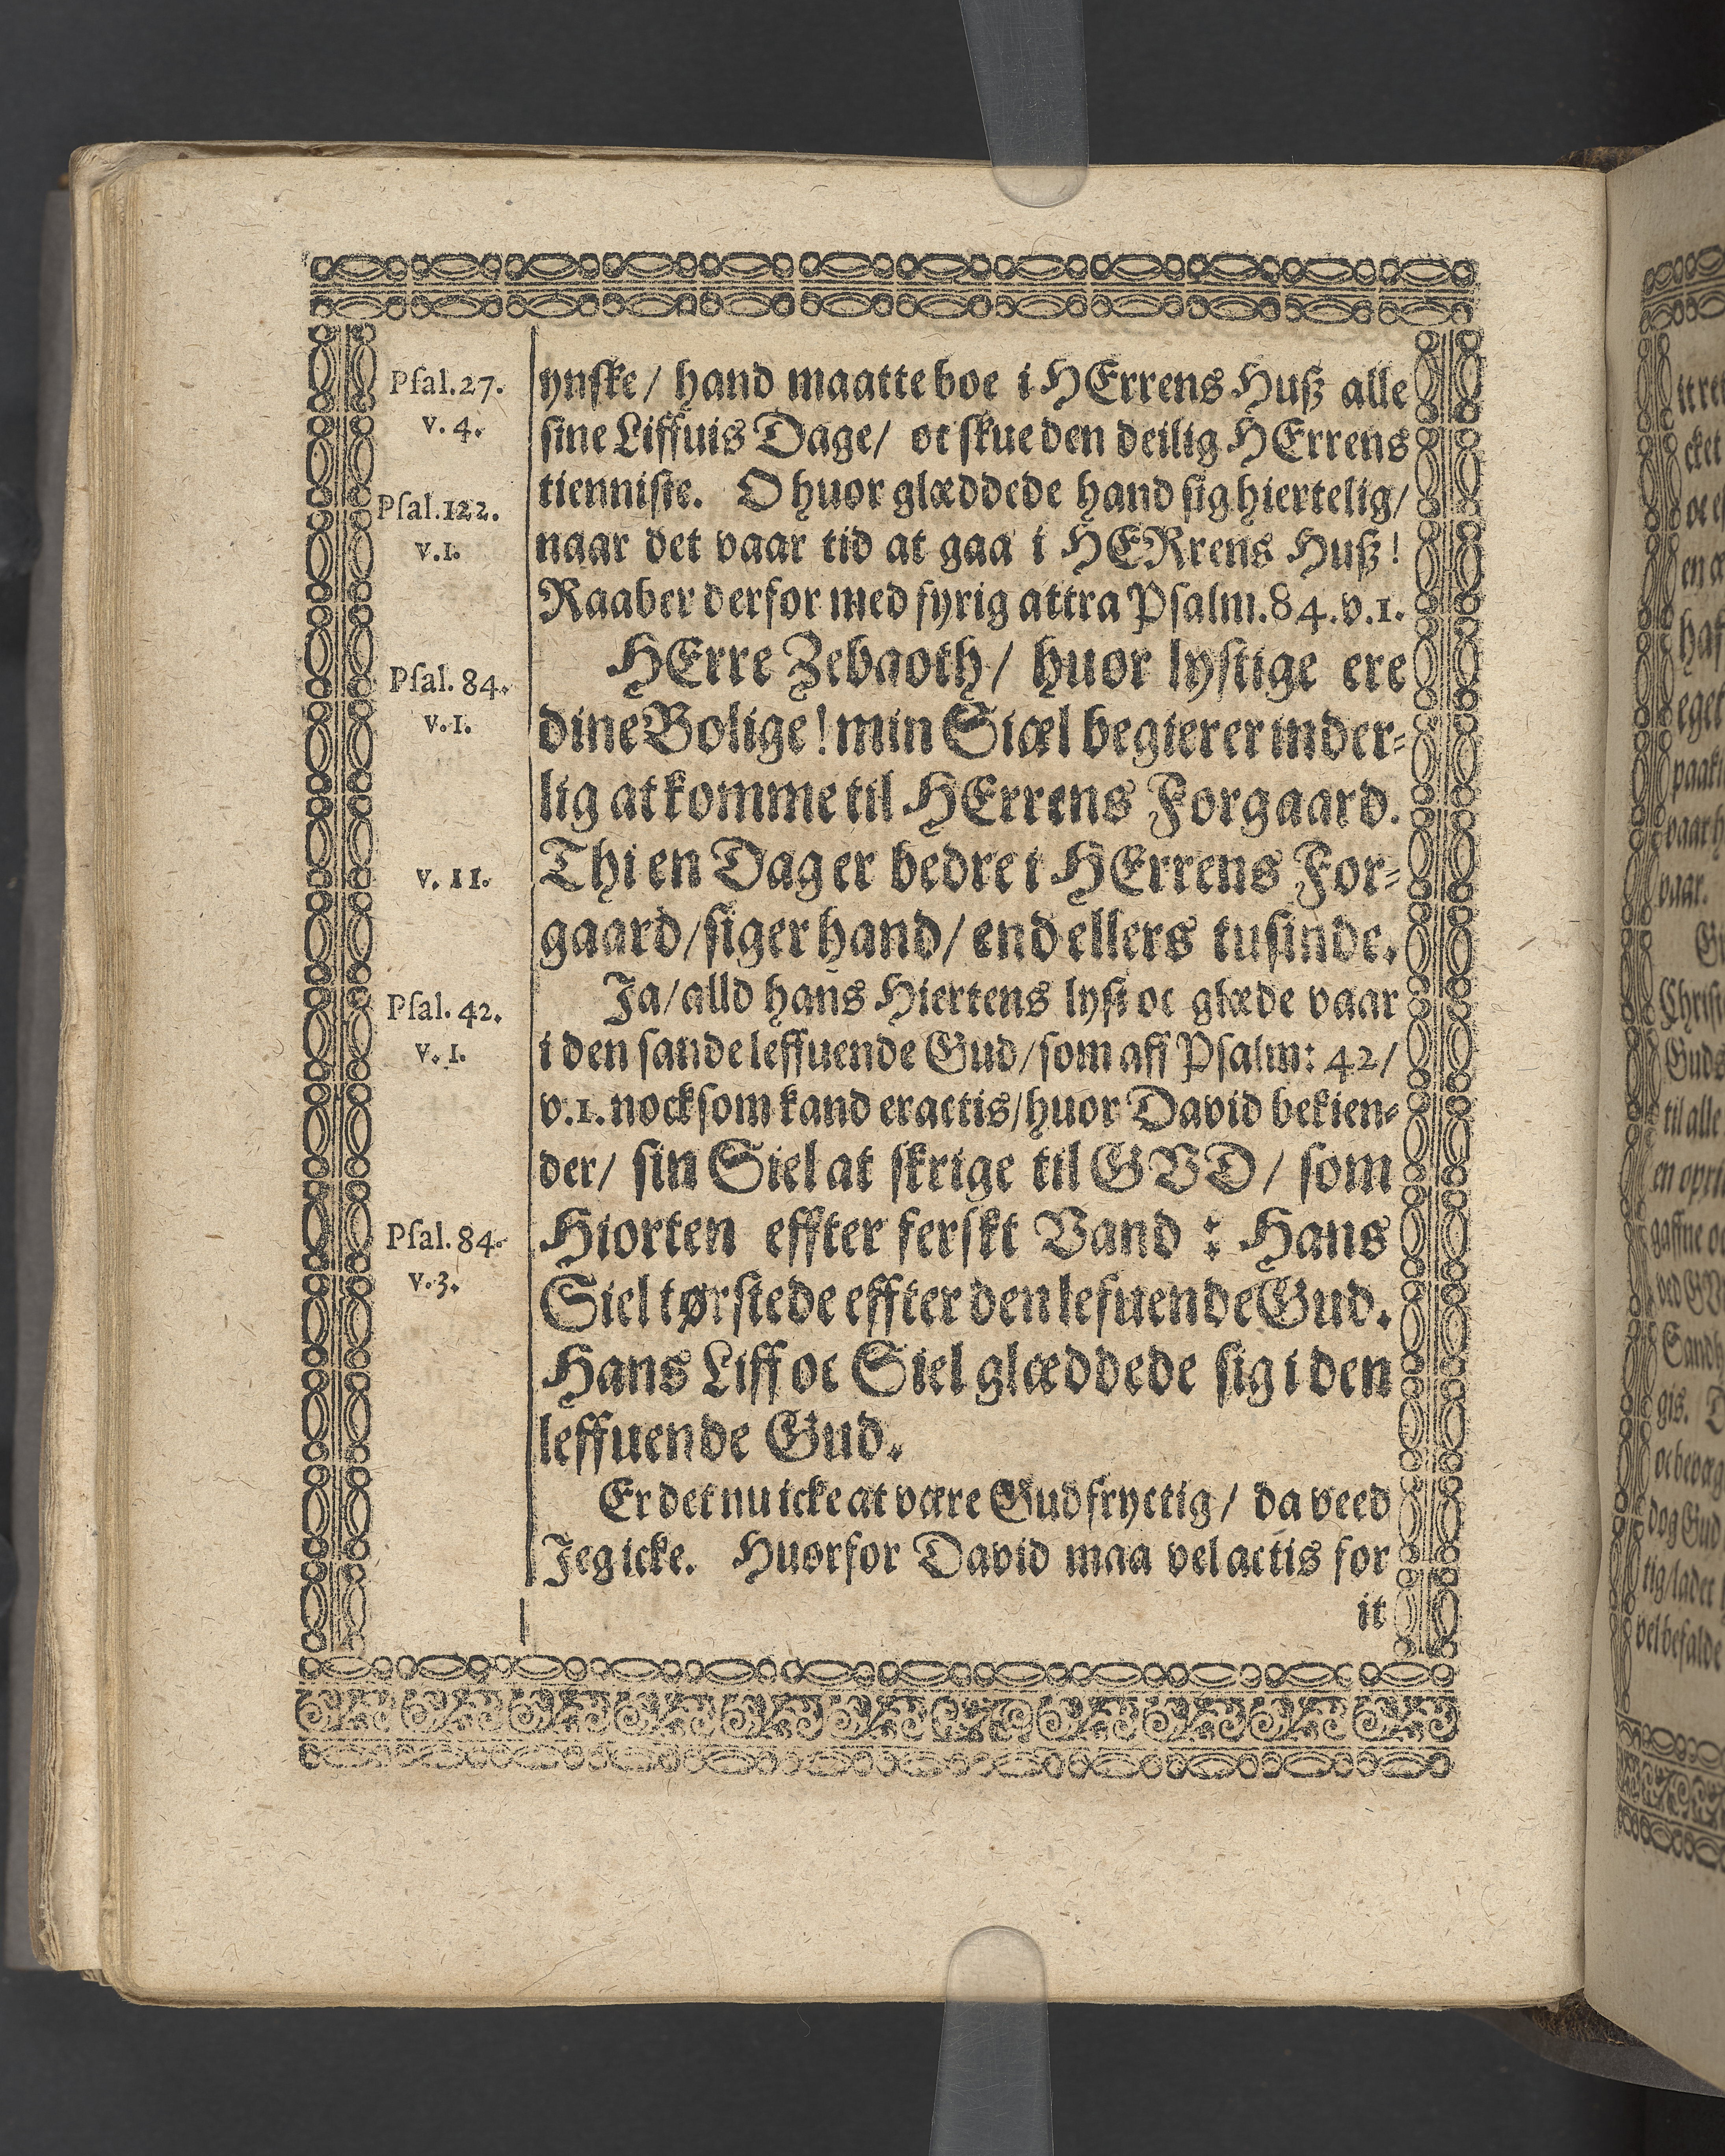 Pſal.27.
v. 4.
Pſal.122.
v.1.
Pſal. 84.
v.1.
v. 11.
Pſal. 42.
v. 1.
Pſal. 84.
v.3.
ynſke / hand maatte boe i HErrens Huß alle
ſine Liffuis Dage / oc ſkue den deilig HErrens
tienniſte. O huor glæddede hand ſig hiertelig /
naar det vaar tid at gaa i HERrens Huß!
Raaber derfor med fyrig attra Pſalm.84.v.1.
HErre Zebaoth / huor lyſtige ere
dine Bolige! min Siæl begierer inder⸗
lig at komme til HErrens Forgaard.
Thi en Dag er bedre i HErrens For⸗
gaard / ſiger hand / end ellers tuſinde.
Ja / alld hans Hiertens lyſt oc glæde vaar
i den ſande leffuende Gud / ſom aff Pſalm: 42 /
v.1. nockſom kand eractis / huor David bekien⸗
der / ſin Siel at ſkrige til GVD / ſom
Hiorten effter ferſkt Vand : Hans
Siel tørſtede effter den lefuende Gud.
Hans Liff oc Siel glæddede ſig i den
leffuende Gud.
Er det nu icke at være Gudfryctig / da veed
Jeg icke. Huorfor David maa vel actis for
it